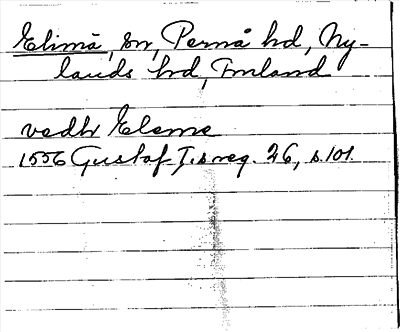 Elimä, sn, Pernå hd, Ny-
lands hd, Finland
vedhr Eleme
1556 Gustaf I:s reg. 26, s. 101.